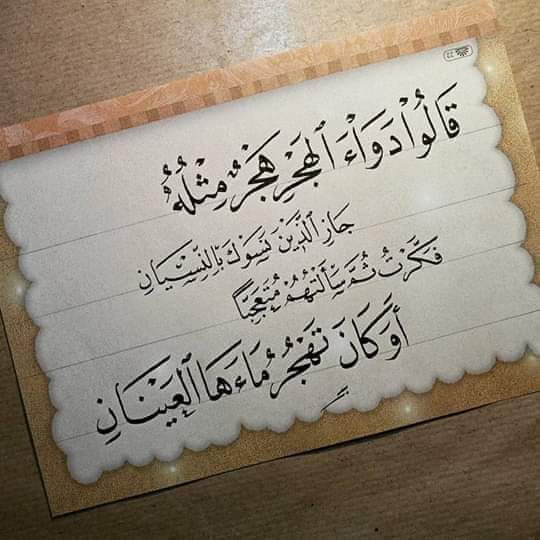 قَالُوْا دَوَاءُ ٱلهَجْرِ هَجْرٌ مِثْلُهُ
جَازِ ٱلَّذِيْنَ نَسَوْكَ بِٱلنِّسْيَانِ
فَكَّرْتُ ثُمَّ سَأَلْتُهُمْ مُتَعَجِّبًا
أَوَكَانَ تَهْجُرُ مَاءَهَا ٱلعَيْنَانِ